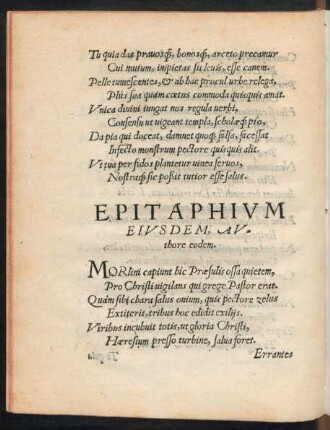 Tu quia das prauosq́;, bonosq́;, arceto precamur
Cui mutum, inpietas sit leuis, esse canem.
Pelle tumescentes, & ab hac procul urbe relega,
Phis sua quàm cœtus commoda quisquis amat.
Vnica diuini iungat nos regula uerbi,
Consensu ut uigeant templa, scholæq́; pio,
Da pia qui doceat, damnet quoq; falsa, facessat
Infecto monstrum pectore quisquis alit.
Vt tua per fidos plantetur uinea seruos,
Nostraq́; sic poßit tutior esse salus.
EPITAPHIVM
EIVSDEM, AV-
thore eodem.
MORlini capiunt hic Præsulis ossa quietem,
Pro Christi uigilans qui grege Pastor erat.
Quàm sibi chara salus ouium, quis pectore zelus
Extiterit, tribus hoc edidit exilijs.
Viribus incubuit totis, ut gloria Christi,
Hæresium presso turbine, salua foret.
Errantes